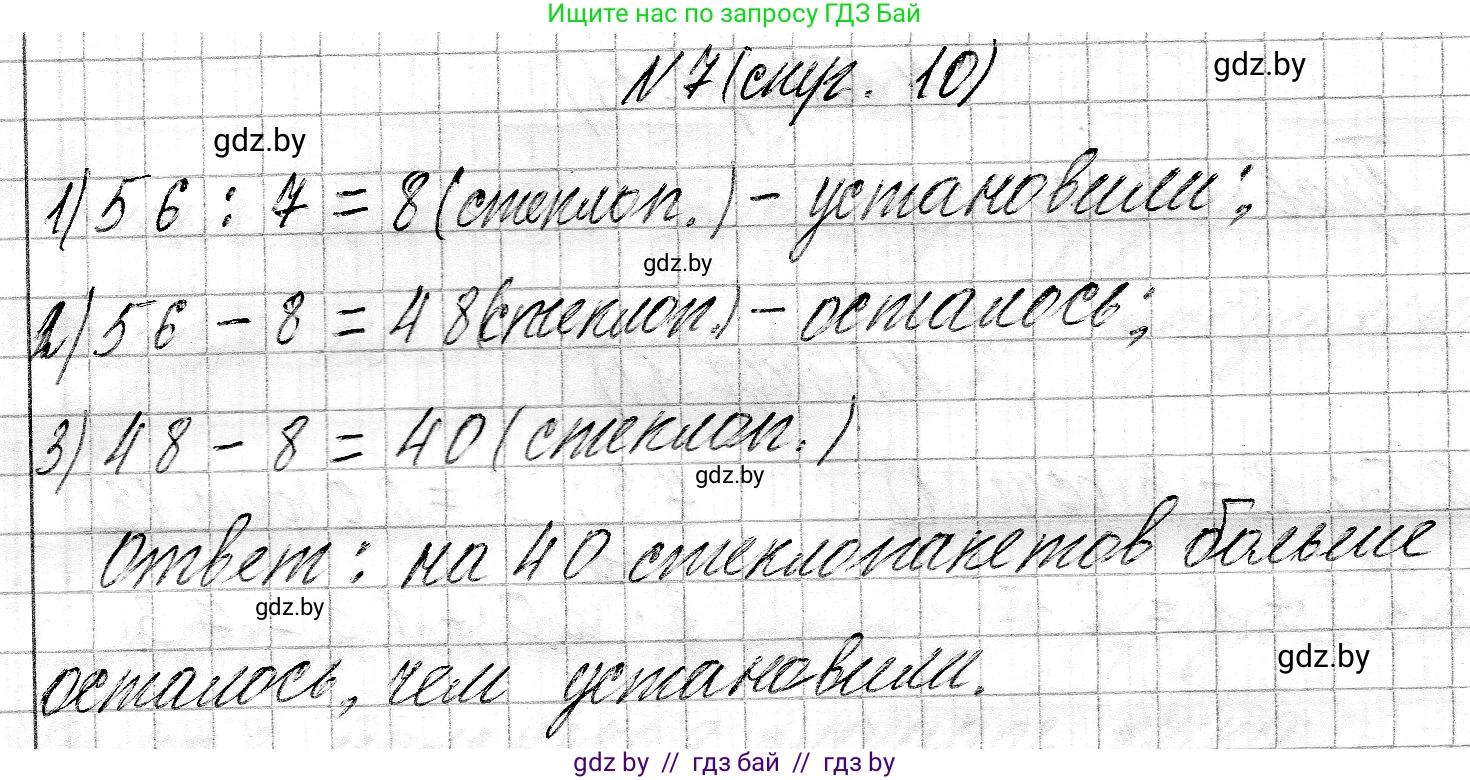 Ищите нас по запросу ГДЗ Бай
N 7 (снуг. 10)
gdz.by
gdz.by
1) 56 : 7 = 8 (стеклоп.) - установили;
gdz.by
2) 56 - 8 = 48 (стеклоп.) - осталось;
3) 48 - 8 = 40 (стеклоп.)
gdz.by
Ответ: на 40 стеклопакетов больше
gdz.by
осталось, чем установили.
gdz.by
gdz by // гдз бай // гдз by